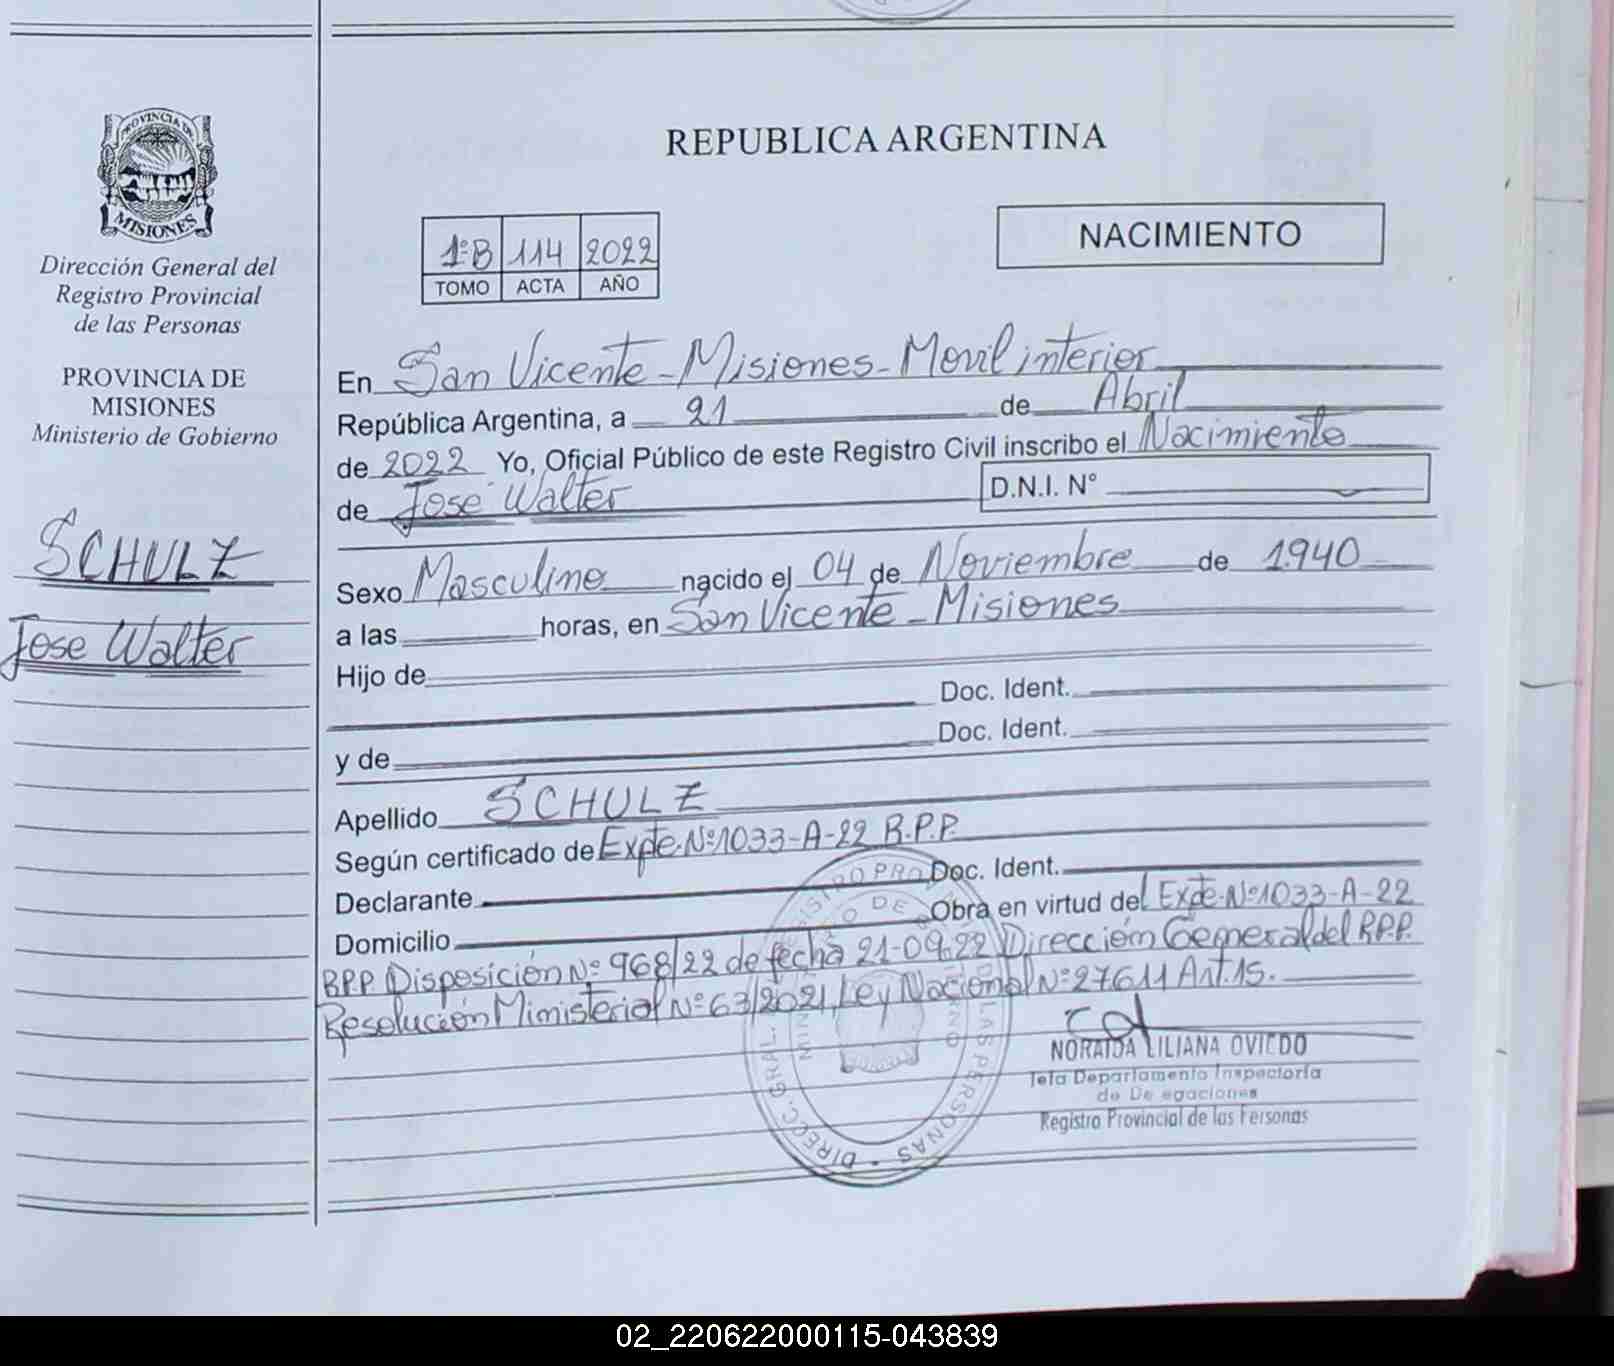 PROVINCIA DE
MISIONES
Dirección General del
Registro Provincial
de las Personas
PROVINCIA DE
MISIONES
Ministerio de Gobierno
SCHULZ
Jose Walter
REPUBLICA ARGENTINA
1ºB 114 2022
TOMO ACTA AÑO
NACIMIENTO
En San Vicente - Misiones - Movil interior
República Argentina, a 21 de Abril
de 2022 Yo, Oficial Público de este Registro Civil inscribo el Nacimiento
de Jose Walter D.N.I. N°
Sexo Masculino nacido el 04 de Noviembre de 1.940
a las horas, en San Vicente - Misiones
Hijo de
Doc. Ident.
y de Doc. Ident.
Apellido SCHULZ
Según certificado de Expte. Nº 1033-A-22 R.P.P.
Declarante Doc. Ident.
Domicilio Obra en virtud del Expte. Nº 1033-A-22
R.P.P. Disposición Nº 968/22 de fecha 21-04-22 Dirección General del R.P.P.
Resolución Ministerial Nº 63/2021, Ley Nacional Nº 27611 Art. 15.
NORAIDA LILIANA OVIEDO
Jefa Departamento Inspectoría
de Delegaciones
Registro Provincial de las Personas
DIRECC. GRAL. REGISTRO PROV. DE LAS PERSONAS
02_220622000115-043839